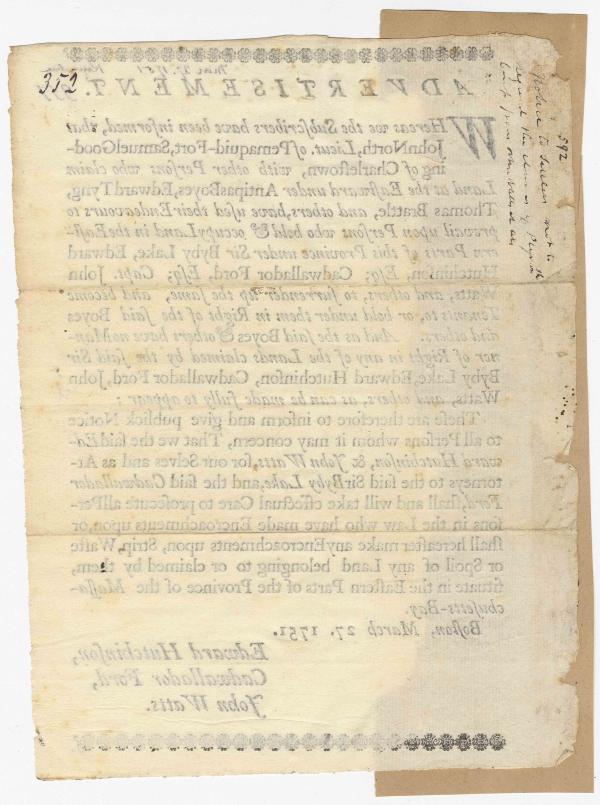 352
ADVERTISEMENT.
WHereas we the Subscribers have been informed, that
John North, Lieut. of Pemaquid-Fort, Samuel Good-
ing of Charlestown, with other Persons who claim
Land at the Eastward under Antipas Boyes, Edward Tyng,
Thomas Brattle, and others, have used their Endeavours to
prevail upon Persons who hold & occupy Land in the East-
ern Parts of this Province under Sir Byby Lake, Edward
Hutchinson, Esq; Cadwallador Ford, Esq; Capt. John
Watts, and others, to surrender up the same, and become
Tenents to, or hold under them in Right of the said Boyes
and others. And as the said Boyes & others have no Man-
ner of Right in any of the Lands claimed by the said Sir
Byby Lake, Edward Hutchinson, Cadwallador Ford, John
Watts, and others, as can be made fully to appear :
These are therefore to inform and give publick Notice
to all Persons whom it may concern, That we the said Ed-
ward Hutchinson, &. John Watts, for our Selves and as At-
torneys to the said Sir Byby Lake, and the said Cadwallador
Ford, shall and will take effectual Care to prosecute all Per-
sons in the Law who have made Encroachments upon, or
shall hereafter make any Encroachments upon, Strip, Waste
or Spoil of any Land belonging to or claimed by them,
situate in the Eastern Parts of the Province of the Massa-
chusetts-Bay.
Boston, March 27. 1751.
Edward Hutchinson,
Cadwallador Ford,
John Watts.
592
Notice to settlers not to
regard the claims of